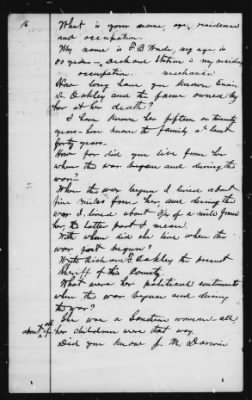 What is your name, age, residence
and occupation.
My name is F B Wade, my age is
60 years — Station is my residence
occupation. mechanic
How long have you known
D. Oakley and the farm owned by
her at her death?
I have known her fifteen or twenty
years — have known the family at least
forty years.
How far did you live from her
when the war began and during the
war?
When the war began I lived about
five miles from her, and during the
war I lived about 3/4 of a mile from
her, the latter part I mean.
With whom did she live when the
war began?
With Oakley the present
Sheriff of the County.
What were her political sentiments
when the war began and during
the war?
She was a Southern woman — all
her children were that way.
Did you know J. M.